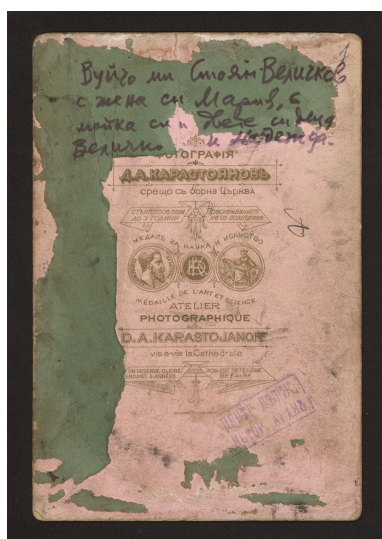 Вуйчо ми Стоян Величков
с жена си Мария, с
майка си и двете си деца
Величко и Надежда.
ФОТОГРАФІЯ
Д.А.КАРАСТОЯНОВЪ
срещо съ горна Църква
ДО 3 ГОДИНИ
МЕДАЛЪ ЗА НАУКА И ИСКУСТВО
MÉDAILLE DE L'ART ET SCIENCE
ATELIER
PHOTOGRAPHIQUE
D.A.KARASTOJANOFF
vis-a-vis la Cathédrale
ON RÉSERVE CLICHÉ
PENDANT 3 ANNÉES